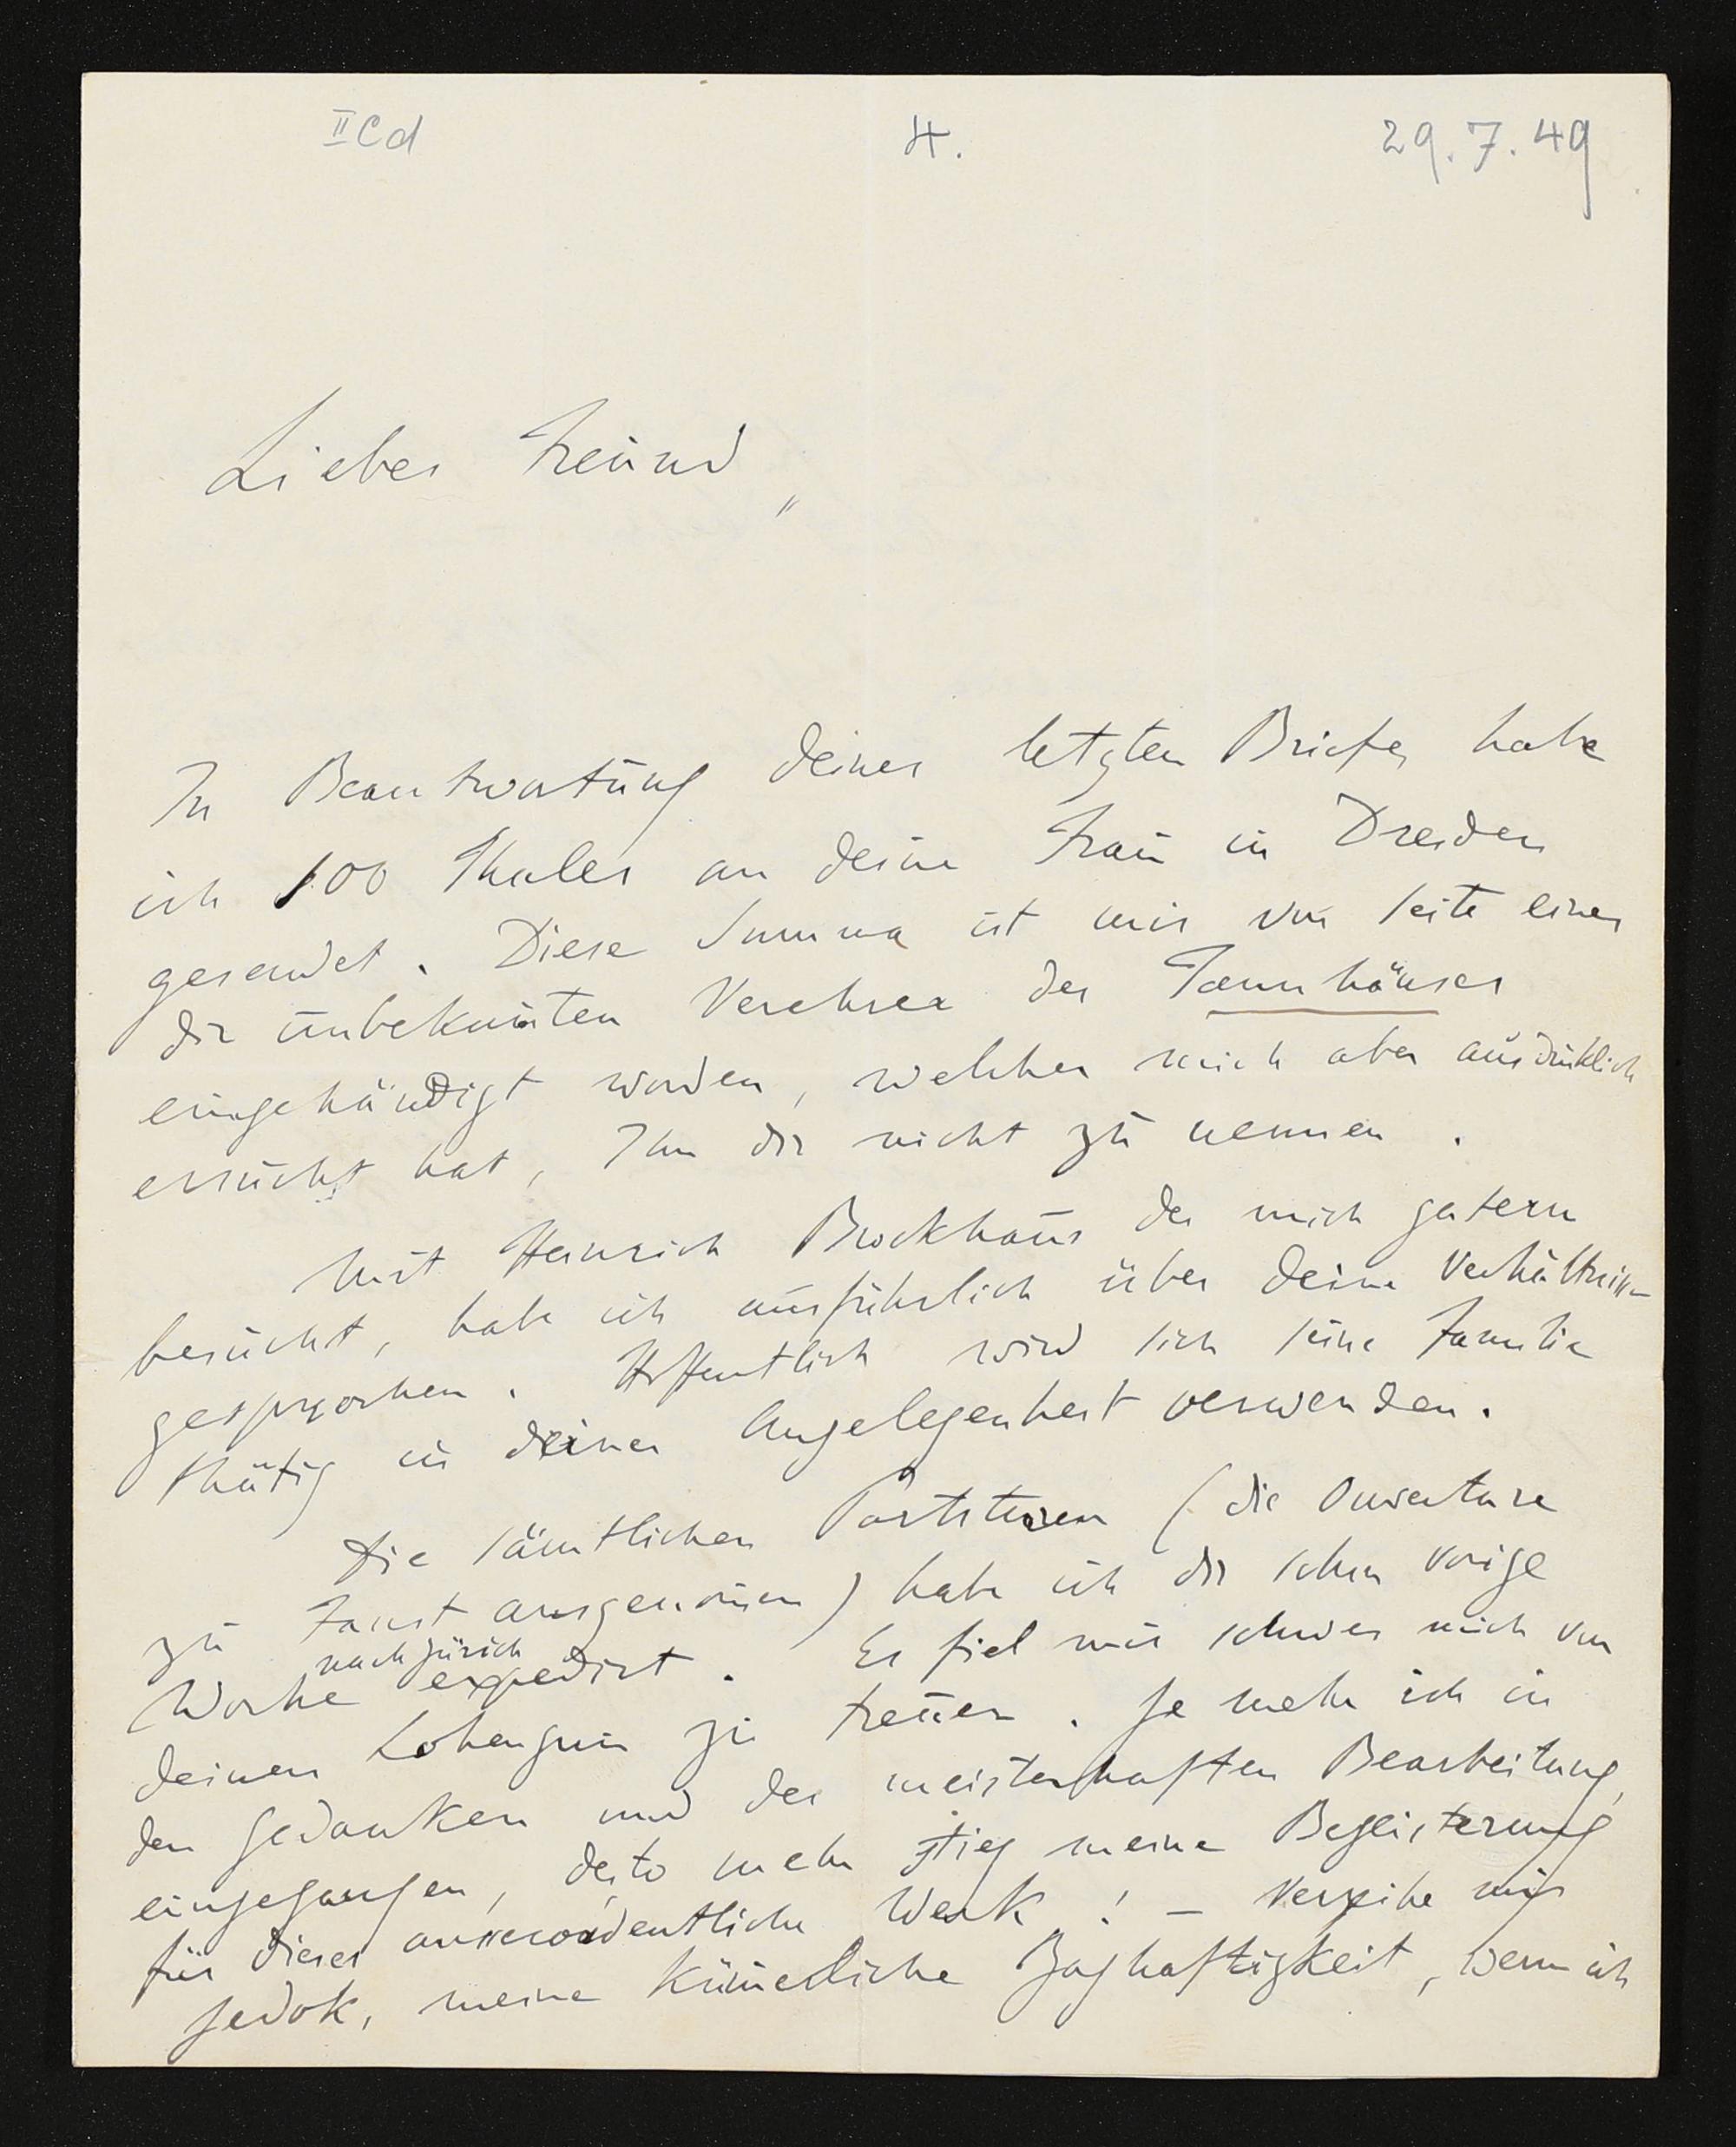 II C d
4.
29.7.49
Lieber Freund,
In Beantwortung deines letzten Briefes habe
ich 100 Thaler an deine Frau in Dresden
gesendet. Diese Summa ist mir von Seite eines
dir unbekannten Verehrer des Tannhäuser
eingehändigt worden, welcher mich aber ausdrüklich
ersucht hat, Ihn dir nicht zu nennen.
Mit Heinrich Brockhaus der mich gestern
besucht, habe ich ausführlich über deine Verhältnisse
gesprochen. Hoffentlich wird sich seine Familie
thätig in deiner Angelegenheit verwenden.
Die sämtlichen Partituren (die Ouverture
zu Faust ausgenomen) habe ich dir schon vorige
Woche nach Zürich expedirt. Es fiel mir schwer mich von
deinen Lohengrin zu trenen. Je mehr ich in
den Gedanken und der meisterhaften Bearbeitung
eingegangen, desto mehr stieg meine Begeisterung
für dieses ausserordentliche Werk! – Verzeihe mir
jedok, meine kümerliche Zaghaftigkeit, wenn ich